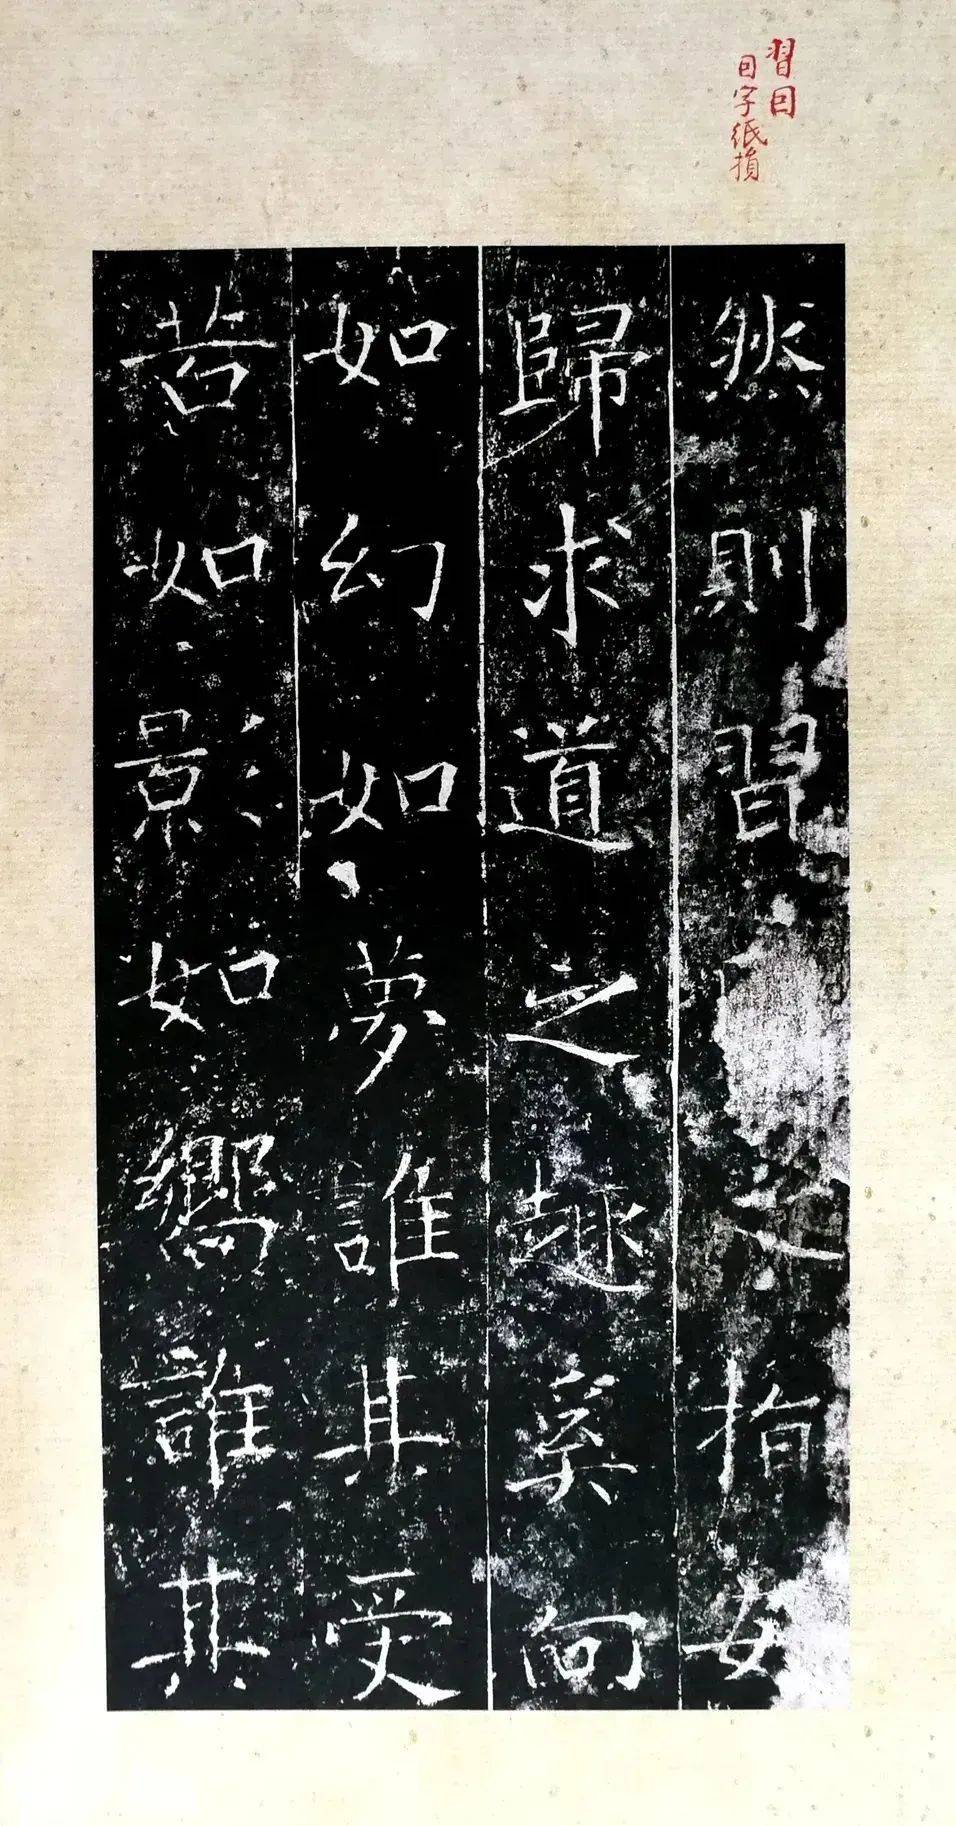 習囙
囙字紙損
然則習之指安
歸求道之趣奚向
如幻如夢誰其受
苦如影如嚮誰其